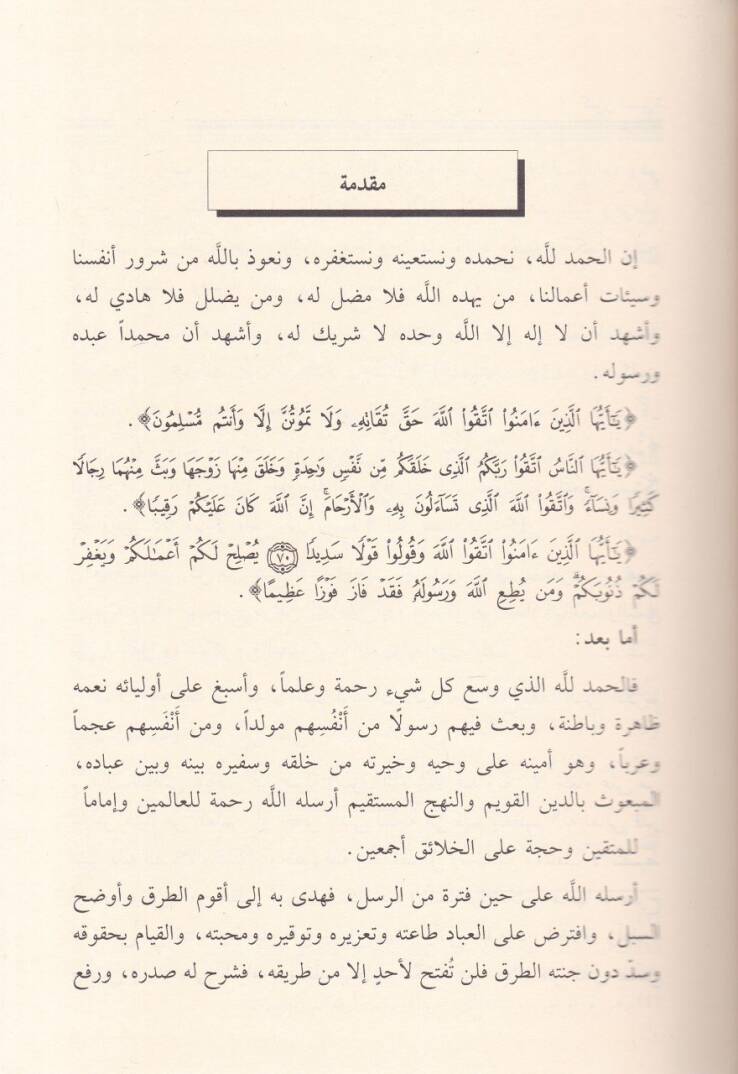 مقدمة
إن الحمد للَّه، نحمده ونستعينه ونستغفره، ونعوذ باللَّه من شرور أنفسنا
وسيئات أعمالنا، من يهده اللَّه فلا مضل له، ومن يضلل فلا هادي له،
وأشهد أن لا إله إلا اللَّه وحده لا شريك له، وأشهد أن محمداً عبده
ورسوله.
﴿يَٰٓأَيُّهَا ٱلَّذِينَ ءَامَنُوا۟ ٱتَّقُوا۟ ٱللَّهَ حَقَّ تُقَاتِهِۦ وَلَا تَمُوتُنَّ إِلَّا وَأَنتُم مُّسْلِمُونَ﴾.
﴿يَٰٓأَيُّهَا ٱلنَّاسُ ٱتَّقُوا۟ رَبَّكُمُ ٱلَّذِى خَلَقَكُم مِّن نَّفْسٍ وَٰحِدَةٍ وَخَلَقَ مِنْهَا زَوْجَهَا وَبَثَّ مِنْهُمَا رِجَالًا
كَثِيرًا وَنِسَآءً ۚ وَٱتَّقُوا۟ ٱللَّهَ ٱلَّذِى تَسَآءَلُونَ بِهِۦ وَٱلْأَرْحَامَ ۚ إِنَّ ٱللَّهَ كَانَ عَلَيْكُمْ رَقِيبًا﴾.
﴿يَٰٓأَيُّهَا ٱلَّذِينَ ءَامَنُوا۟ ٱتَّقُوا۟ ٱللَّهَ وَقُولُوا۟ قَوْلًا سَدِيدًا ٧٠ يُصْلِحْ لَكُمْ أَعْمَٰلَكُمْ وَيَغْفِرْ
لَكُمْ ذُنُوبَكُمْ ۗ وَمَن يُطِعِ ٱللَّهَ وَرَسُولَهُۥ فَقَدْ فَازَ فَوْزًا عَظِيمًا﴾.
أما بعد:
فالحمد للَّه الذي وسع كل شيء رحمة وعلماً، وأسبغ على أوليائه نعمه
ظاهرة وباطنة، وبعث فيهم رسولًا من أَنْفُسِهم مولداً، ومن أَنْفَسِهم عجماً
وعرباً، وهو أمينه على وحيه وخيرته من خلقه وسفيره بينه وبين عباده،
المبعوث بالدين القويم والنهج المستقيم أرسله اللَّه رحمة للعالمين وإماماً
للمتقين وحجة على الخلائق أجمعين.
أرسله اللَّه على حين فترة من الرسل، فهدى به إلى أقوم الطرق وأوضح
السبل، وافترض على العباد طاعته وتعزيره وتوقيره ومحبته، والقيام بحقوقه
وسدّ دون جنته الطرق فلن تُفتح لأحدٍ إلا من طريقه، فشرح له صدره، ورفع